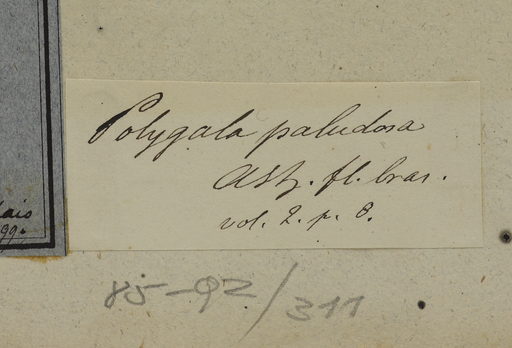 Polygala paludosa
ASth. fl. bras.
vol. 2. p. 8.
85-92/311
99.